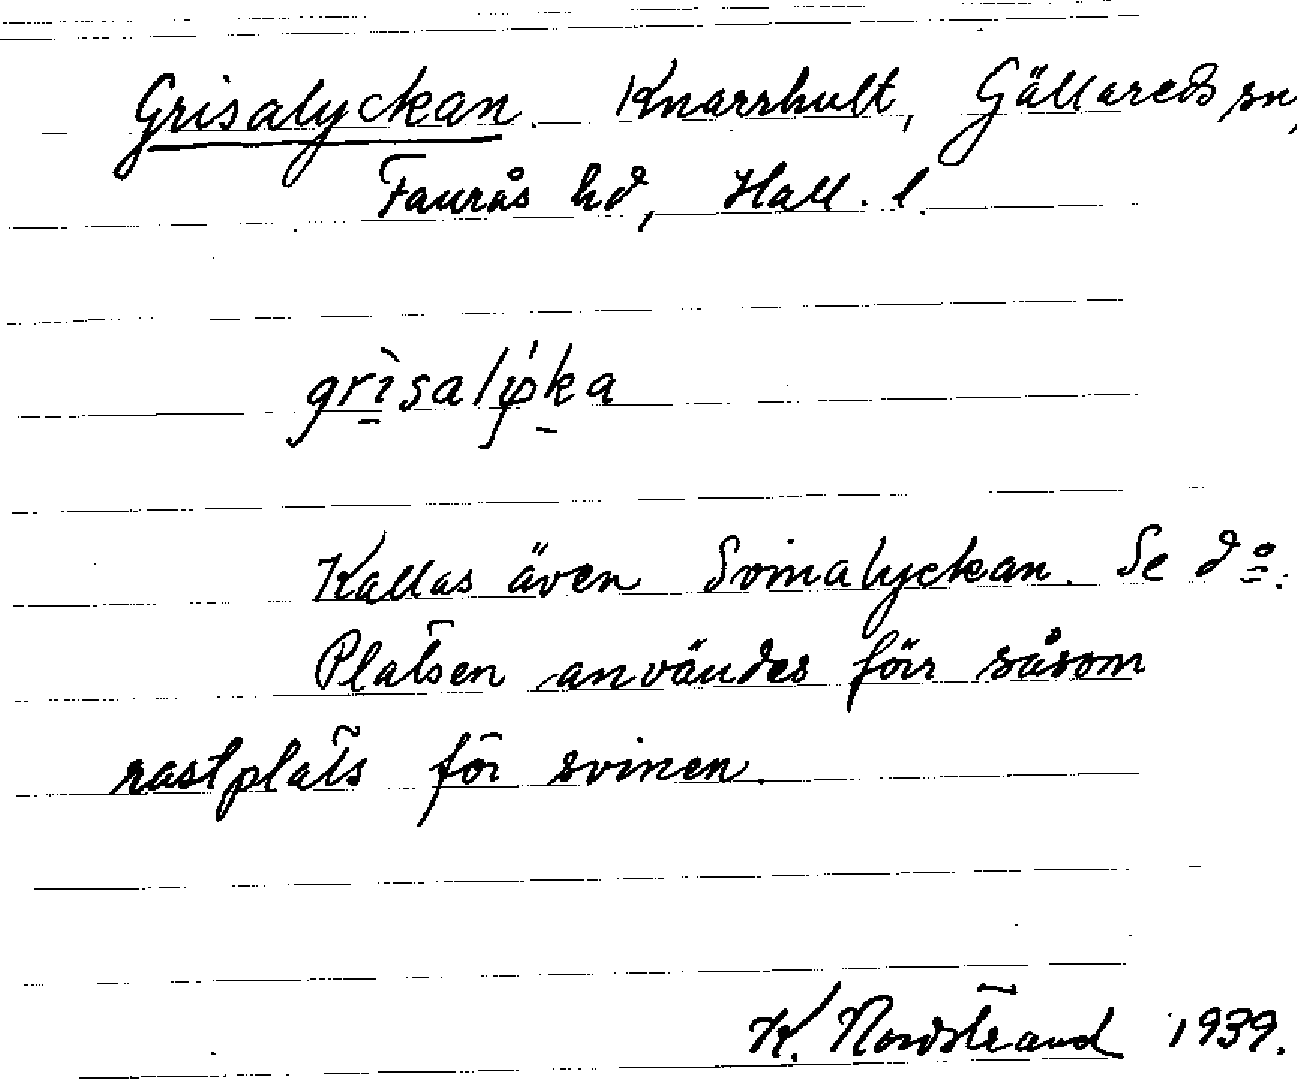 Grisalyckan. Knarrhult, Gällareds sn,
Faurås hd, Hall. l.
grìsalyka
Kallas även Svinalyckan. Se do.
Platsen användes förr såsom
rastplats för svinen.
K. Nordstrand 1939.